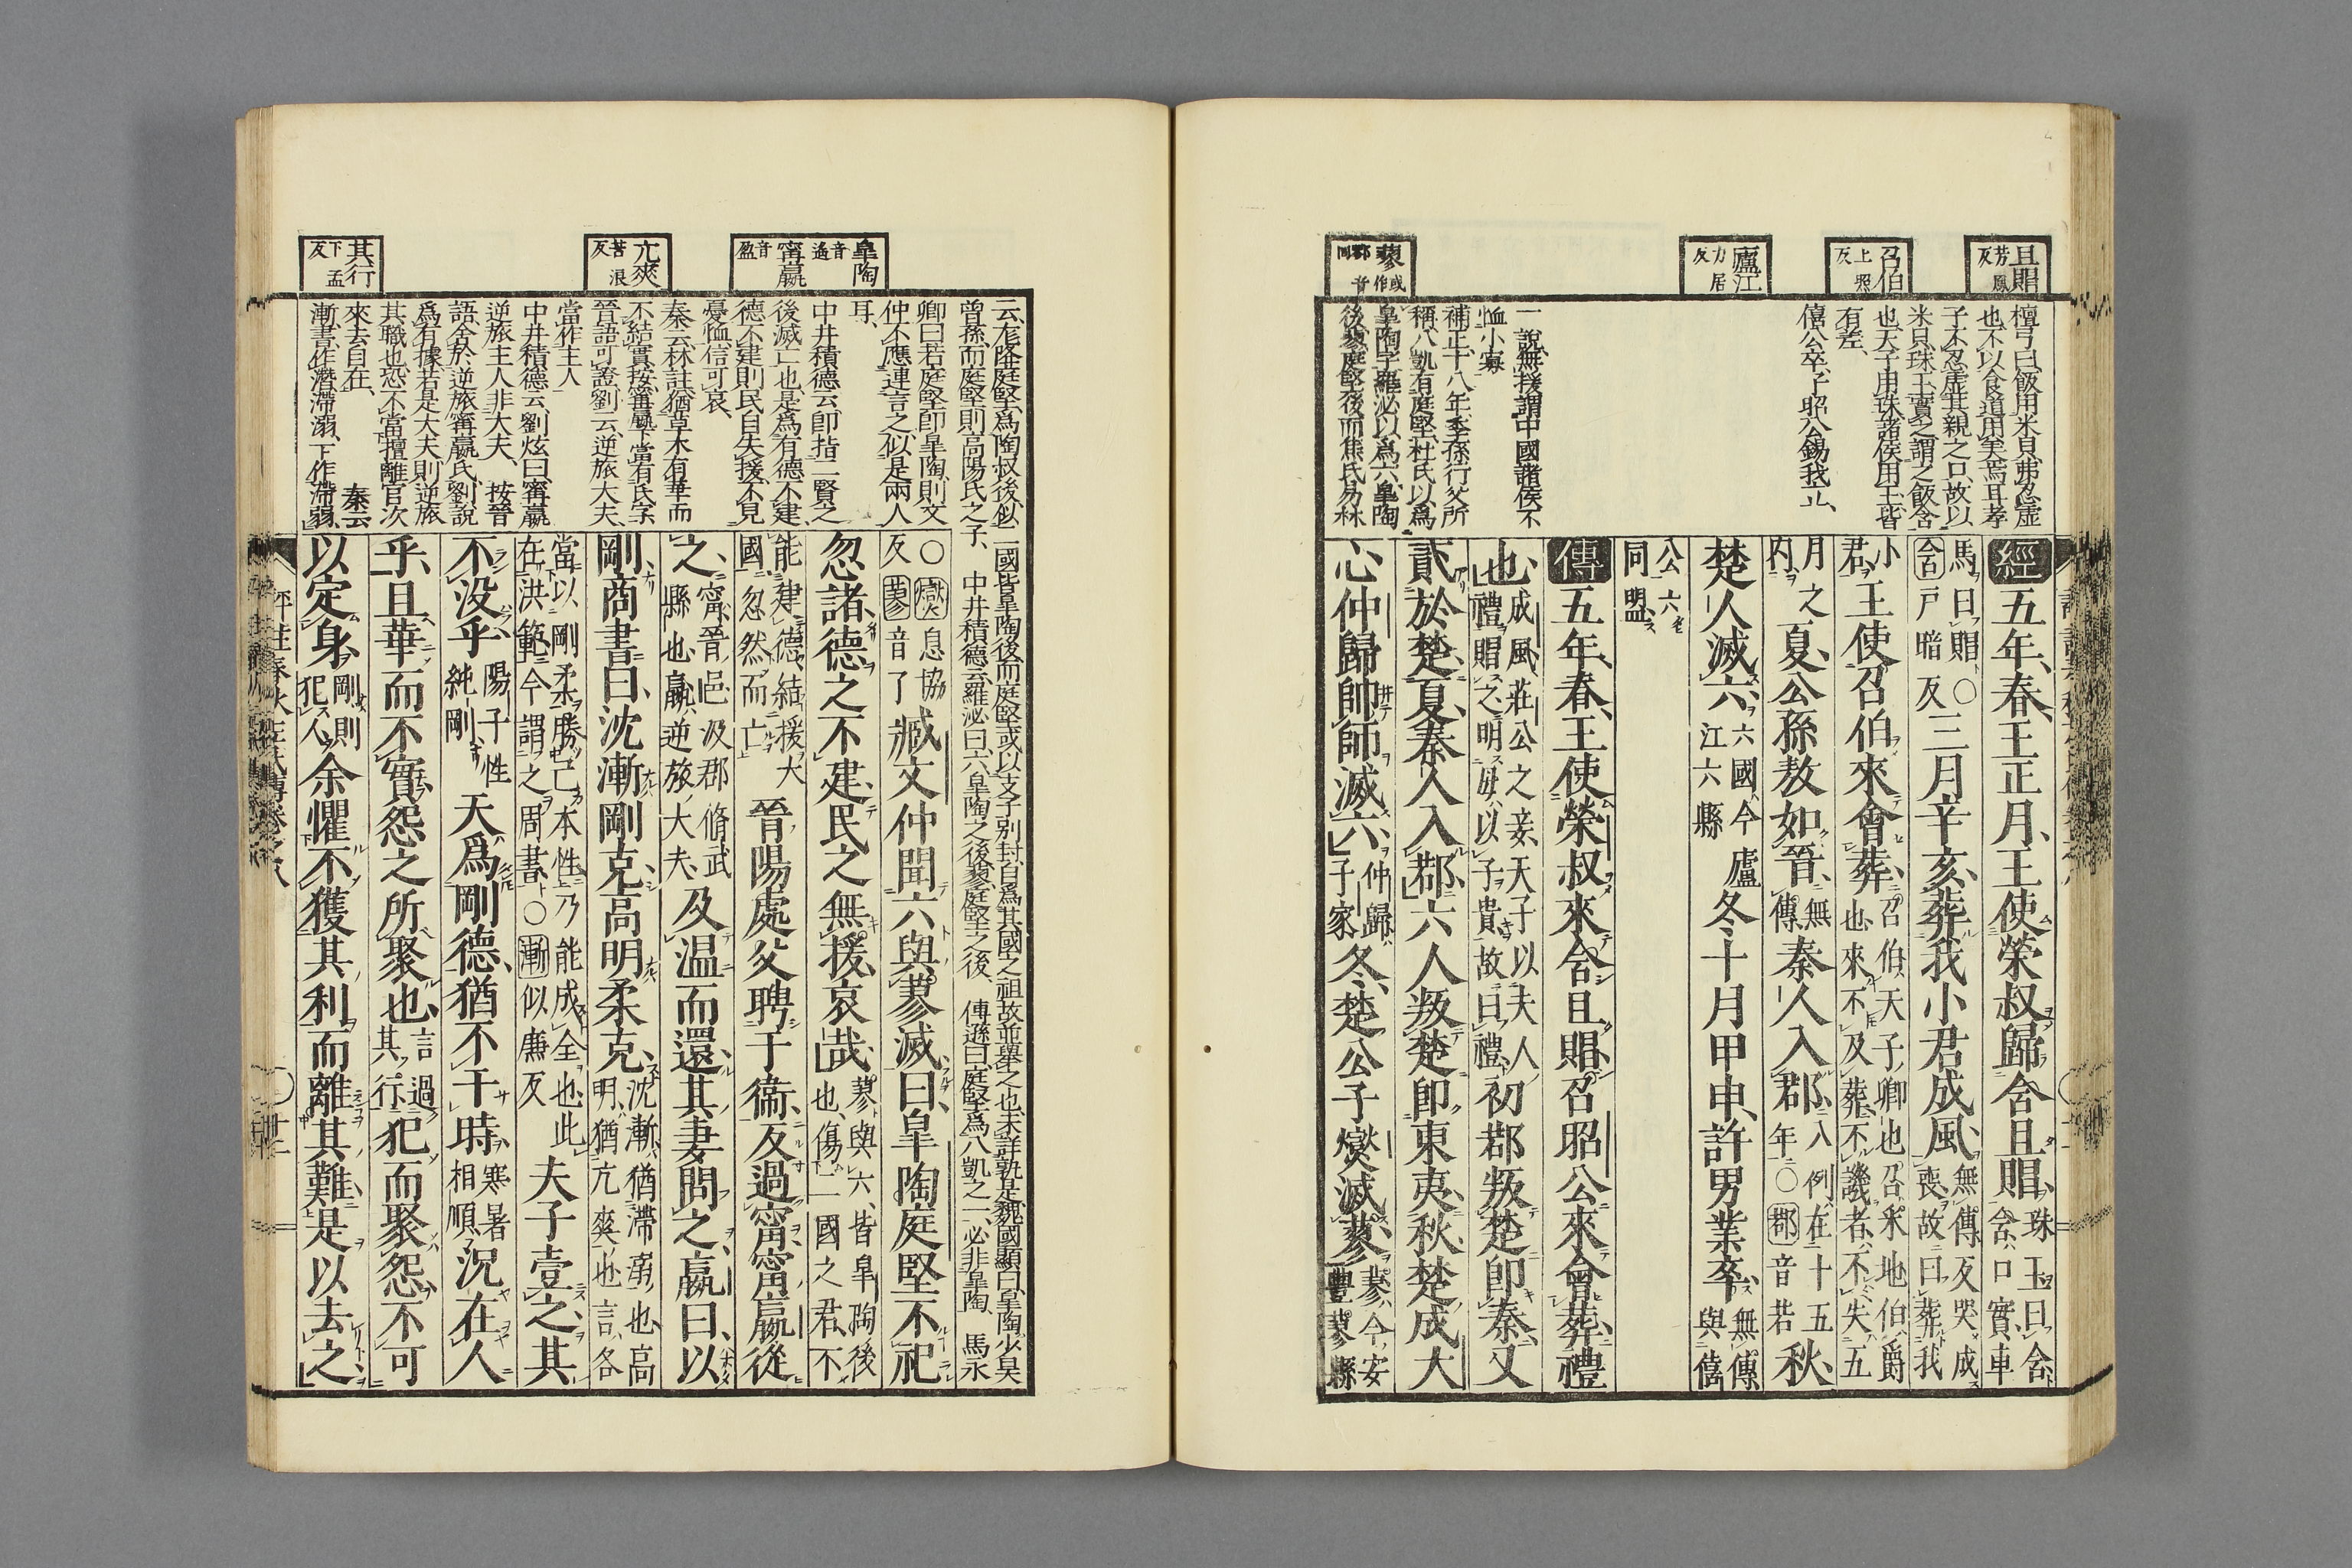 且賵 芳鳳反
召伯 上照反
廬江 力居反
蓼 或作鄝音同
檀弓曰飯用米貝弗忍虛
也不以食道用美焉耳孝
子不忍虛其親之口故以
米貝珠玉實之謂之飯含
也天子用珠諸侯用玉皆
有差、
僖公卒子昭公錫我立、
一說無援謂中國諸侯不
恤小寡
補正十八年季孫行父所
稱八凱有庭堅杜氏以爲
皐陶字羅泌以爲六皐陶
後蓼庭堅後而焦氏易林
經五年、春、王正月、王使榮叔歸含且賵、珠玉曰含、含口實、車
馬曰賵○含戸暗反三月辛亥、葬我小君成風、無傳反哭成喪故曰葬我
小君王使召伯來會葬、召伯天子卿也召采地伯爵也來不及葬不譏者不失五
月之內夏公孫敖如晉、無傳秦人入鄀、入例在十五年○鄀音若秋、
楚人滅六、六國今廬江六縣冬十月甲申、許男業卒、無傳與僖
公六同盟
傳五年、春、王使榮叔來含且賵、召昭公來會葬、禮
也、成風莊公之妾天子以夫人禮賵之明母以子貴故曰禮初鄀叛楚卽秦、又
貳於楚、夏秦人入鄀、六人叛楚卽東夷、秋楚成大
心仲歸帥師滅六、仲歸子家冬、楚公子燮滅蓼、蓼今安豐蓼縣
皐陶 音遙
甯嬴 音盈
亢爽 苦浪反
其行 下孟反
云、尨降庭堅、爲陶叔後似二國皆皐陶後而庭堅或以支子別封、自爲其國之祖故並舉之也、未詳孰是、魏國顯曰、皐陶少昊
曾孫而庭堅則高陽氏之子、中井積德云羅泌曰六皐陶之後蓼庭堅之後、傳遜曰庭堅爲八凱之一、必非皐陶、馬永
卿曰若庭堅卽皐陶、則文
仲不應連言之似是兩人
耳、
中井積德云卽指二賢之
後滅亡也是爲有德不建
德不建則民自失援不見
憂恤信可哀、
秦云林註猶草木有華而
不結實、按甯嬴下當有氏字
晉語可證劉云逆旅大夫、
當作主人
中井積德云劉炫曰甯嬴
逆旅主人非大夫、按晉
語舍於逆旅甯嬴氏、劉說
爲有據若是大夫則逆旅
其職也恐不當擅離官次
來去自在、秦云
漸書作潛滯溺、下作滯弱、
○燮息協反蓼音了臧文仲聞六與蓼滅、曰、皐陶庭堅不祀
忽諸、德之不建、民之無援、哀哉、蓼與六皆皐陶後也、傷二國之君、不
能建德結援大國忽然而亡晉陽處父聘于衞、反過甯、甯嬴從
之、甯晉邑汲郡脩武縣也、嬴逆旅大夫、及溫而還、其妻問之、嬴曰、以
剛、商書曰、沈漸剛克、高明柔克、沈漸猶滯溺也、高明猶亢爽也言各
當以剛柔勝己本性乃能成全也、此在洪範今謂之周書○漸似廉反夫子壹之、其
不没乎、陽子性純剛天爲剛德、猶不干時、寒暑相順況在人
乎、且華而不實、怨之所聚也、言過其行犯而聚怨、不可
以定身、剛則犯人余懼不獲其利、而離其難、是以去之、